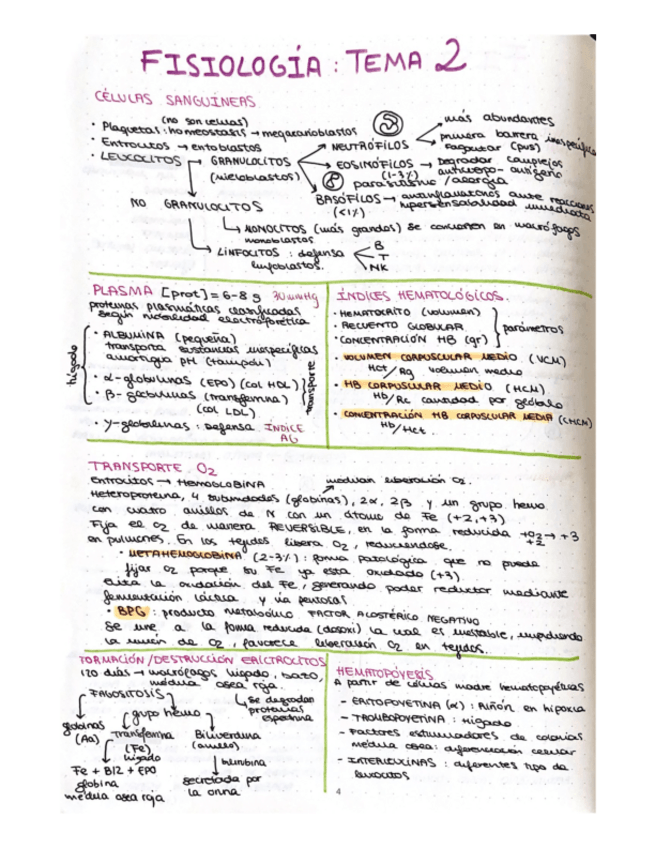 FISIOLOGÍA: TEMA 2
CÉLULAS SANGUÍNEAS
(no son células)
· Plaquetas: homeostasis → megacarioblastos
· Eritrocitos → eritoblastos
· LEUCOCITOS → GRANULOCITOS
(mieloblastos)
NEUTRÓFILOS
más abundantes
primera barrera inespecífica
fagocitar (pus)
EOSINÓFILOS → Degradar complejos
(1-3%) anticuerpo-antígeno
parasitismo / alergia
BASÓFILOS → antiinflamatorios ante reacciones
(<1%) hipersensibilidad inmediata
NO GRANULOCITOS
MONOCITOS (más grandes) se convierten en macrófagos
monoblastos
LINFOCITOS : defensa
linfoblastos.
B
T
NK
PLASMA [prot] = 6-8 g 30 mmHg
proteínas plasmáticas clasificadas
según movilidad electroforética
hígado
· ALBUMINA (pequeña)
transporta sustancias inespecíficas
amortigua pH (tampón)
· α-globulinas (EPO) (col HDL)
· β-globulinas (transferrina)
(col LDL)
transporte
· γ-globulinas : Defensa ÍNDICE
AG
ÍNDICES HEMATOLÓGICOS.
· HEMATOCRITO (volumen)
· RECUENTO GLOBULAR
· CONCENTRACIÓN HB (gr)
parámetros
· VOLUMEN CORPUSCULAR MEDIO (VCM)
Hct/Rg volumen medio
· HB CORPUSCULAR MEDIO (HCM)
Hb/Rc cantidad por glóbulo
· CONCENTRACIÓN HB CORPUSCULAR MEDIA (CHCM)
Hb/Hct.
TRANSPORTE O2
Eritrocitos → HEMOGLOBINA
modulan liberación O2.
Heteroproteina, 4 subunidades (globinas), 2α, 2β y un grupo hemo
con cuatro anillos de N con un átomo de Fe (+2,+3)
Fija el O2 de manera REVERSIBLE, en la forma reducida +O2 → +3
+2
en pulmones. En los tejidos libera O2, reduciéndose.
· METAHEMOGLOBINA (2-3%) : forma patológica que no puede
fijar O2 porque su Fe ya esta oxidado (+3)
Evita la oxidación del Fe, generando poder reductor mediante
fermentación láctica y vía pentosas.
· BPG : producto metabólico FACTOR ALOSTÉRICO NEGATIVO
Se une a la forma reducida (desoxi) la cual es inestable, impidiendo
la unión de O2, favorece liberación O2 en tejidos.
FORMACIÓN/DESTRUCCIÓN ERICTROCITOS
120 días → macrófagos hígado, bazo,
médula osea roja.
FAGOSITOSIS
se degradan
proteínas
espectrina
globinas
(Aa)
grupo hemo
Transferrina
(Fe)
hígado
Biliverdina
(anillo)
bilirrubina
secretada por
la orina
Fe + B12 + EPO
globina
médula osea roja
HEMATOPOYESIS
A partir de células madre hematopoyéticas
- ERITOPOYETINA (α) : Riñón en hipoxia
- TROMBOPOYETINA : Hígado
- Factores estimuladores de colonias
médula osea : diferenciación celular
- INTERLEUCINAS : diferentes tipo de
leucocitos
4